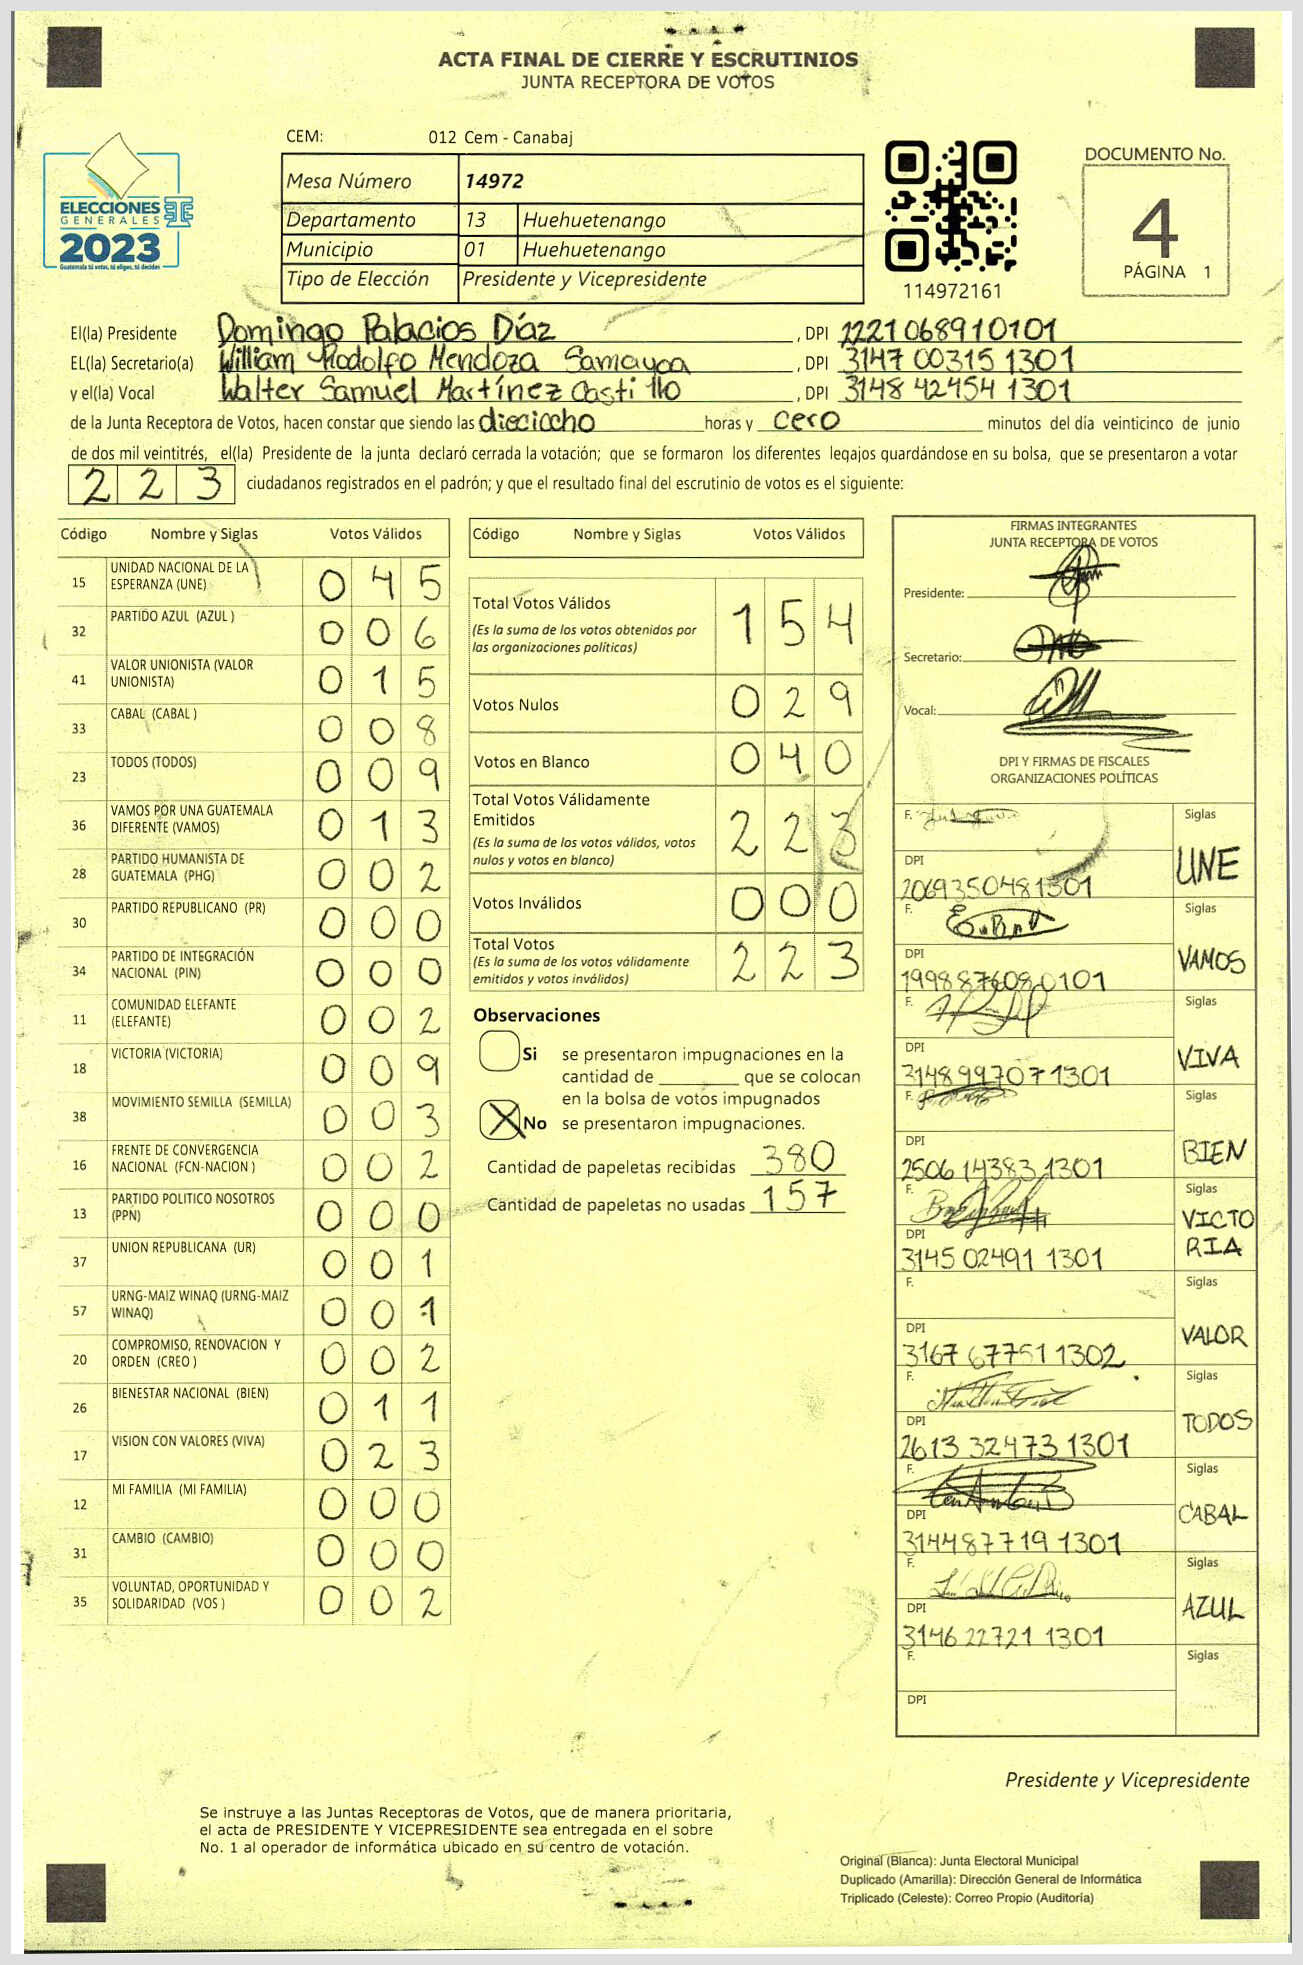 ACTA FINAL DE CIERRE Y ESCRUTINIOS
JUNTA RECEPTORA DE VOTOS
CEM: 012 Cem - Canabaj
ELECCIONES
GENERALES
2023
Guatemala tú votas, tú eliges, tú decides
Mesa Número 14972
Departamento 13 Huehuetenango
Municipio 01 Huehuetenango
Tipo de Elección Presidente y Vicepresidente
114972161
DOCUMENTO No.
4
PÁGINA 1
El(la) Presidente Domingo Palacios Díaz, DPI 2221068910101
EL(la) Secretario(a) William Rodolfo Mendoza Samayoa, DPI 3147 00315 1301
y el(la) Vocal Walter Samuel Martínez Castillo, DPI 3148 42454 1301
de la Junta Receptora de Votos, hacen constar que siendo las dieciocho horas y cero minutos del día veinticinco de junio
de dos mil veintitrés, el(la) Presidente de la junta declaró cerrada la votación; que se formaron los diferentes legajos guardándose en su bolsa, que se presentaron a votar
223 ciudadanos registrados en el padrón; y que el resultado final del escrutinio de votos es el siguiente:
Código Nombre y Siglas Votos Válidos
15 UNIDAD NACIONAL DE LA
ESPERANZA (UNE) 045
32 PARTIDO AZUL (AZUL ) 006
41 VALOR UNIONISTA (VALOR
UNIONISTA) 015
33 CABAL (CABAL ) 008
23 TODOS (TODOS) 009
36 VAMOS POR UNA GUATEMALA
DIFERENTE (VAMOS) 013
28 PARTIDO HUMANISTA DE
GUATEMALA (PHG) 002
30 PARTIDO REPUBLICANO (PR) 000
34 PARTIDO DE INTEGRACIÓN
NACIONAL (PIN) 000
11 COMUNIDAD ELEFANTE
(ELEFANTE) 002
18 VICTORIA (VICTORIA) 009
38 MOVIMIENTO SEMILLA (SEMILLA) 003
16 FRENTE DE CONVERGENCIA
NACIONAL (FCN-NACION ) 002
13 PARTIDO POLITICO NOSOTROS
(PPN) 000
37 UNION REPUBLICANA (UR) 001
57 URNG-MAIZ WINAQ (URNG-MAIZ
WINAQ) 001
20 COMPROMISO, RENOVACION Y
ORDEN (CREO ) 002
26 BIENESTAR NACIONAL (BIEN) 011
17 VISION CON VALORES (VIVA) 023
12 MI FAMILIA (MI FAMILIA) 000
31 CAMBIO (CAMBIO) 000
35 VOLUNTAD, OPORTUNIDAD Y
SOLIDARIDAD (VOS ) 002
Código Nombre y Siglas Votos Válidos
Total Votos Válidos 154
(Es la suma de los votos obtenidos por
las organizaciones políticas)
Votos Nulos 029
Votos en Blanco 040
Total Votos Válidamente
Emitidos 223
(Es la suma de los votos válidos, votos
nulos y votos en blanco)
Votos Inválidos 000
Total Votos 223
(Es la suma de los votos válidamente
emitidos y votos inválidos)
Observaciones
Si se presentaron impugnaciones en la
cantidad de ________ que se colocan
en la bolsa de votos impugnados
X No se presentaron impugnaciones.
Cantidad de papeletas recibidas 380
Cantidad de papeletas no usadas 157
FIRMAS INTEGRANTES
JUNTA RECEPTORA DE VOTOS
Presidente:
Secretario:
Vocal:
DPI Y FIRMAS DE FISCALES
ORGANIZACIONES POLÍTICAS
F. Siglas
UNE
DPI
2069350481301
F. Siglas
VAMOS
DPI
1998876080101
F. Siglas
VIVA
DPI
3148997071301
F. Siglas
BIEN
DPI
2506 14383 1301
F. Siglas
VICTO
RIA
DPI
3145 02491 1301
F. Siglas
VALOR
DPI
3167 67751 1302
F. Siglas
TODOS
DPI
2613 32473 1301
F. Siglas
CABAL
DPI
314487719 1301
F. Siglas
AZUL
DPI
3146 22721 1301
F. Siglas
DPI
Presidente y Vicepresidente
Se instruye a las Juntas Receptoras de Votos, que de manera prioritaria,
el acta de PRESIDENTE Y VICEPRESIDENTE sea entregada en el sobre
No. 1 al operador de informática ubicado en su centro de votación.
Original (Blanca): Junta Electoral Municipal
Duplicado (Amarilla): Dirección General de Informática
Triplicado (Celeste): Correo Propio (Auditoría)